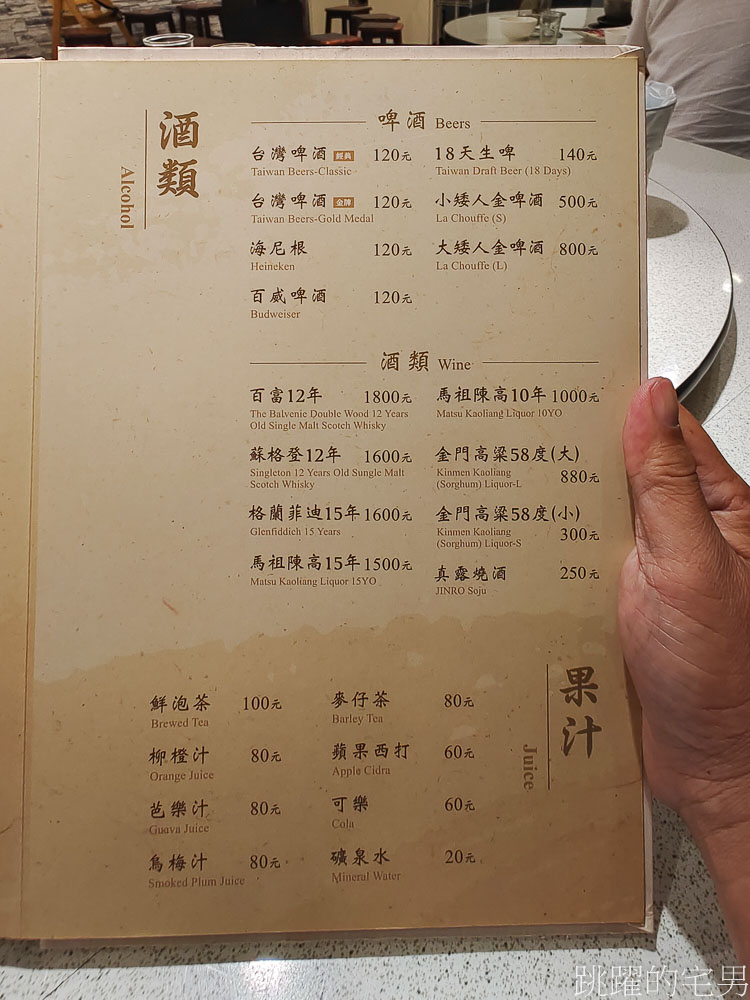 酒類
Alcohol
啤酒 Beers
台灣啤酒 經典 120元
Taiwan Beers-Classic
台灣啤酒 金牌 120元
Taiwan Beers-Gold Medal
海尼根 120元
Heineken
百威啤酒 120元
Budweiser
18天生啤 140元
Taiwan Draft Beer (18 Days)
小矮人金啤酒 500元
La Chouffe (S)
大矮人金啤酒 800元
La Chouffe (L)
酒類 Wine
百富12年 1800元
The Balvenie Double Wood 12 Years
Old Single Malt Scotch Whisky
蘇格登12年 1600元
Singleton 12 Years Old Sungle Malt
Scotch Whisky
格蘭菲迪15年 1600元
Glenfiddich 15 Years
馬祖陳高15年 1500元
Matsu Kaoliang Liquor 15YO
馬祖陳高10年 1000元
Matsu Kaoliang Liquor 10YO
金門高粱58度(大)
Kinmen Kaoliang
(Sorghum) Liquor-L 880元
金門高粱58度(小)
Kinmen Kaoliang
(Sorghum) Liquor-S 300元
真露燒酒 250元
JINRO Soju
果汁
Juice
鮮泡茶 100元
Brewed Tea
柳橙汁 80元
Orange Juice
芭樂汁 80元
Guava Juice
烏梅汁 80元
Smoked Plum Juice
麥仔茶 80元
Barley Tea
蘋果西打 60元
Apple Cidra
可樂 60元
Cola
礦泉水 20元
Mineral Water
跳躍的宅男